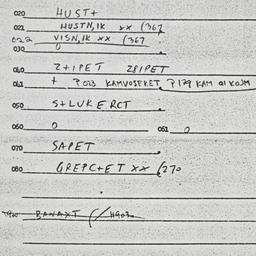 020 HUST+
021 HUSTN, IK xx (367
022 VISN, IK xx (367
030 0
040 Z+IPET ZPIPET
041 + P 023 KAMVOSERET, P 179 KAM 01 KOJM
050 S+LUKERCT
060 0 061 0
070 SAPET
080 GREPC+ET xx (270